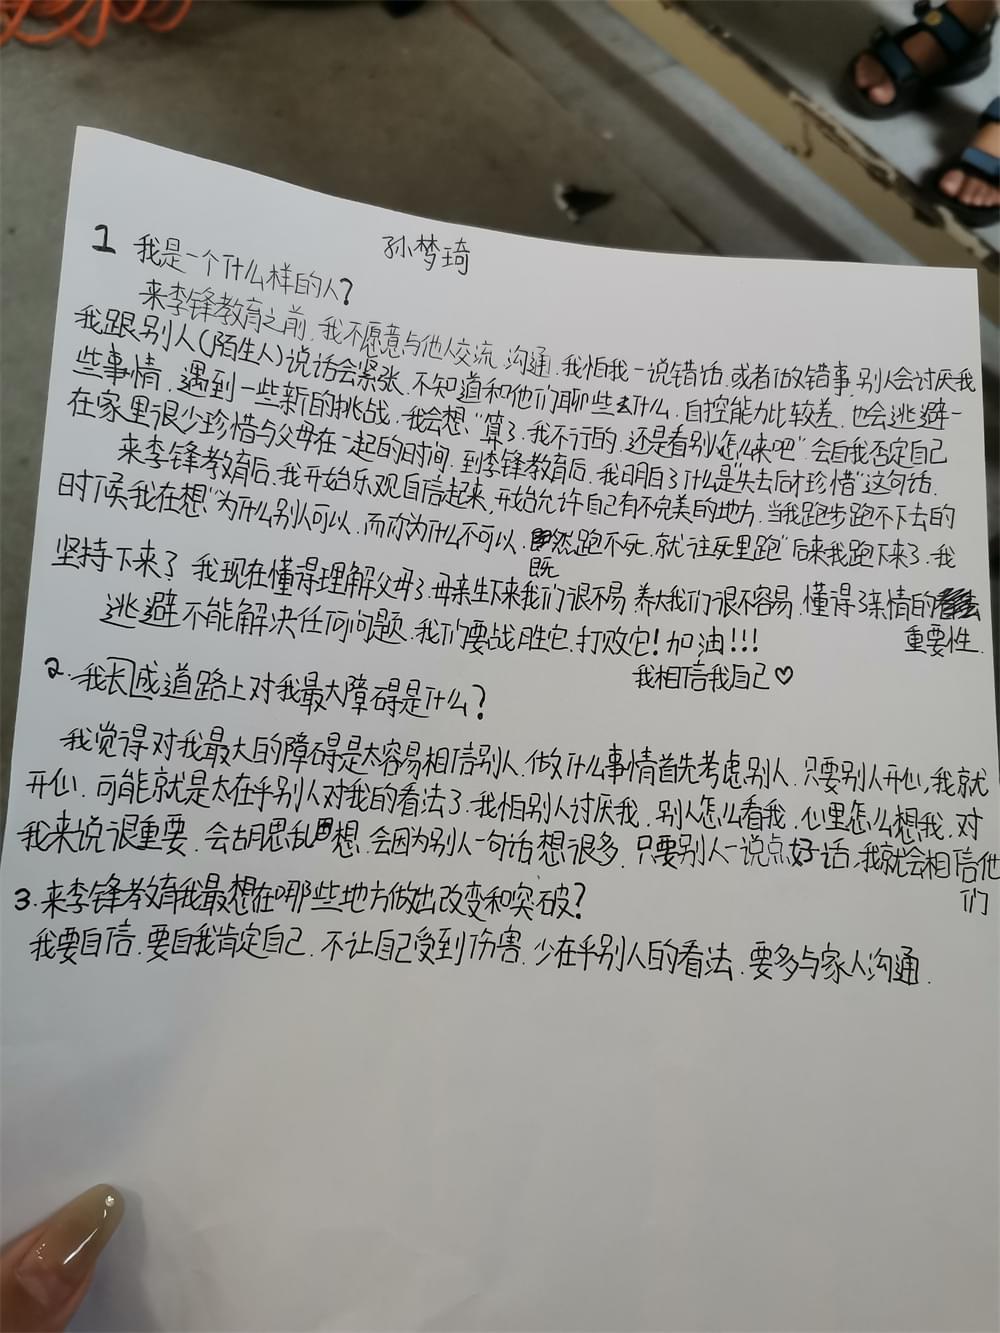 孙梦琦
1 我是一个什么样的人?
来李锋教育之前.我不愿意与他人交流.沟通.我怕我一说错话.或者做错事.别人会讨厌我
我跟别人(陌生人)说话会紧张.不知道和他们聊些什么.自控能力比较差.也会逃避一
些事情.遇到一些新的挑战.我会想、"算了.我不行的.还是看别怎么来吧"会自我否定自己
在家里很少珍惜与父母在一起的时间.到李锋教育后.我明白了什么是"失去后才珍惜"这句话.
来李锋教育后.我开始乐观自信起来.开始允许自己有不完美的地方.当我跑步跑不下去的
时候我在想"为什么别人可以.而你为什么不可以.既然跑不死.就往死里跑"后来我跑下来了.我
坚持下来了 我现在懂得理解父母了.母亲生下来我们很不易.养大我们很不容易.懂得了亲情的
重要性.
逃避不能解决任何问题.我们要战胜它.打败它!加油!!!
我相信我自己♡
2.我成道路上对我最大障碍是什么?
我觉得对我最大的障碍是太容易相信别人.做什么事情首先考虑别人.只要别人开心,我就
开心.可能就是太在乎别人对我的看法了.我怕别人讨厌我.别人怎么看我.心里怎么想我.对
我来说很重要.会胡思乱想.会因为别人一句话想很多.只要别人一说点好话,我就会相信他
们
3.来李锋教育我最想在哪些地方做出改变和突破?
我要自信.要自我肯定自己.不让自己受到伤害.少在乎别人的看法.要多与家人沟通.